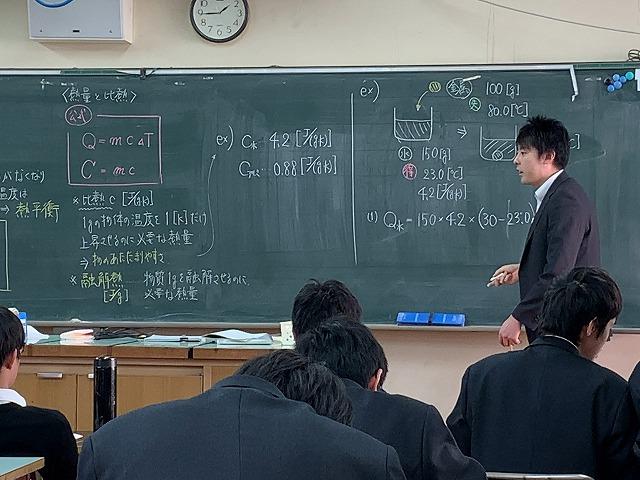 〈熱量と比熱〉
公式
Q = mcΔT
C = mc
※比熱 c [J/(g・K)]
1gの物体の温度を1[K]だけ
上昇させるのに必要な熱量
⇒ 物のあたたまりやすさ
※融解熱 物質1gを融解させるのに
[J/g] 必要な熱量
温度は
⇒ 熱平衡
ex)
C水 = 4.2 [J/(g・K)]
0.88 [J/(g・K)]
ex)
金 100 [g]
80.0 [℃]
⇒
水 150 [g]
23.0 [℃]
4.2 [J/(g・K)]
(1) Q水 = 150 × 4.2 × (30 − 23.0)